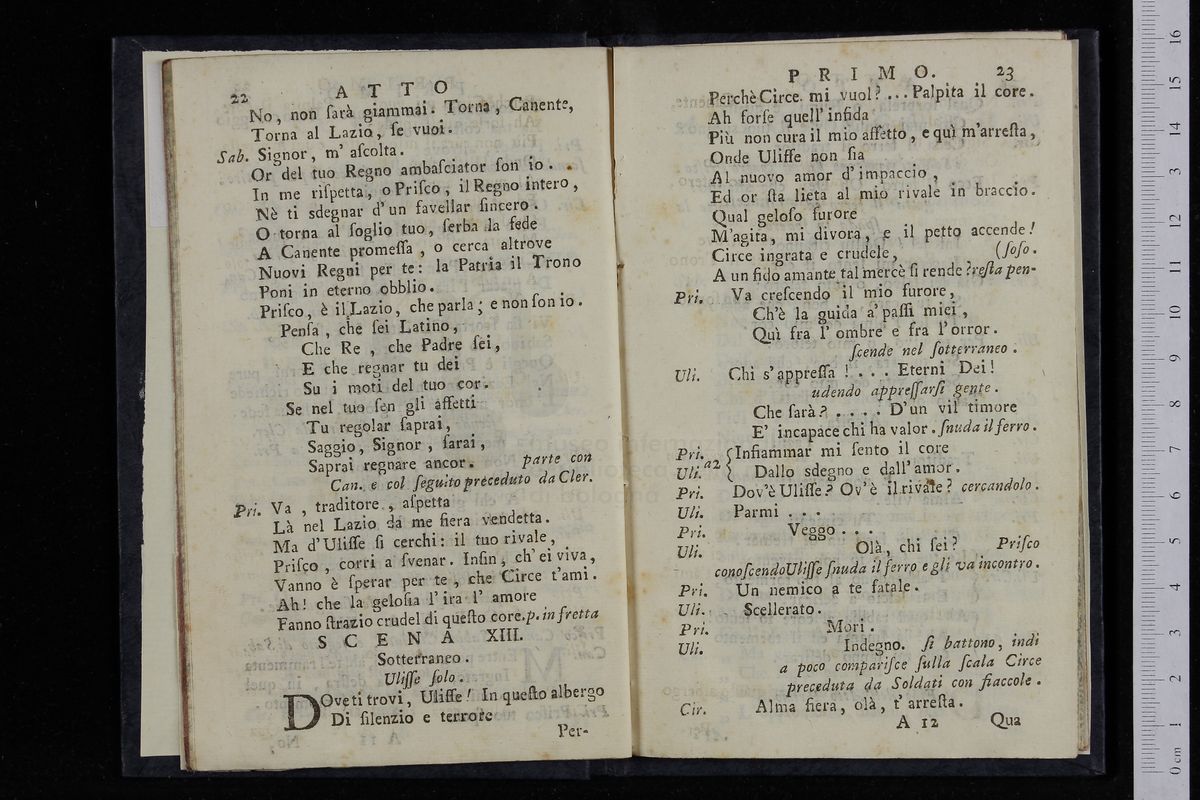 22
ATTO
No, non ſarà giammai. Torna, Canente,
Torna al Lazio, ſe vuoi.
Sab. Signor, m' aſcolta.
Or del tuo Regno ambaſciator ſon io.
In me riſpetta, o Priſco, il Regno intero,
Nè ti sdegnar d'un favellar ſincero.
O torna al ſoglio tuo, ſerba la fede
A Canente promeſſa, o cerca altrove
Nuovi Regni per te: la Patria il Trono
Poni in eterno obblio.
Priſco, è il Lazio, che parla; e non ſon io.
Penſa, che ſei Latino,
Che Re, che Padre ſei,
E che regnar tu dei
Su i moti del tuo cor.
Se nel tuo ſen gli affetti
Tu regolar ſaprai,
Saggio, Signor, ſarai,
Saprai regnare ancor. parte con
Can. e col ſeguito preceduto da Cler.
Pri. Va, traditore, aſpetta
Là nel Lazio da me fiera vendetta.
Ma d'Uliſſe ſi cerchi: il tuo rivale,
Priſco, corri a ſvenar. Inſin, ch' ei viva,
Vanno è ſperar per te, che Circe t'ami.
Ah! che la geloſia l'ira l' amore
Fanno ſtrazio crudel di queſto core. p. in fretta
SCENA XIII.
Sotterraneo.
Uliſſe ſolo.
DOve ti trovi, Uliſſe! In queſto albergo
Di ſilenzio e terrore
Per-
PRIMO. 23
Perchè Circe mi vuol? ... Palpita il core.
Ah forſe quell' infida
Più non cura il mio affetto, e quì m'arreſta,
Onde Uliſſe non ſia
Al nuovo amor d'impaccio,
Ed or ſta lieta al mio rivale in braccio.
Qual geloſo furore
M'agita, mi divora, e il petto accende!
Circe ingrata e crudele, (ſoſo.
A un fido amante tal mercè ſi rende? reſta pen-
Pri. Va creſcendo il mio furore,
Ch'è la guida a' paſſi miei,
Quì fra l' ombre e fra l'orror.
ſcende nel ſotterraneo.
Uli. Chi s' appreſſa! .... Eterni Dei!
udendo appreſſarſi gente.
Che ſarà? .... D'un vil timore
E' incapace chi ha valor. ſnuda il ferro.
Pri. Infiammar mi ſento il core
Uli. a2 { Dallo sdegno e dall' amor.
Pri. Dov'è Uliſſe? Ov'è il rivale? cercandolo.
Uli. Parmi ...
Pri. Veggo ...
Uli. Olà, chi ſei? Priſco
conoſcendo Uliſſe ſnuda il ferro e gli va incontro.
Pri. Un nemico a te fatale.
Uli. Scellerato.
Pri. Mori.
Uli. Indegno. ſi battono, indi
a poco compariſce ſulla ſcala Circe
preceduta da Soldati con fiaccole.
Cir. Alma fiera, olà, t' arreſta.
A 12 Qua